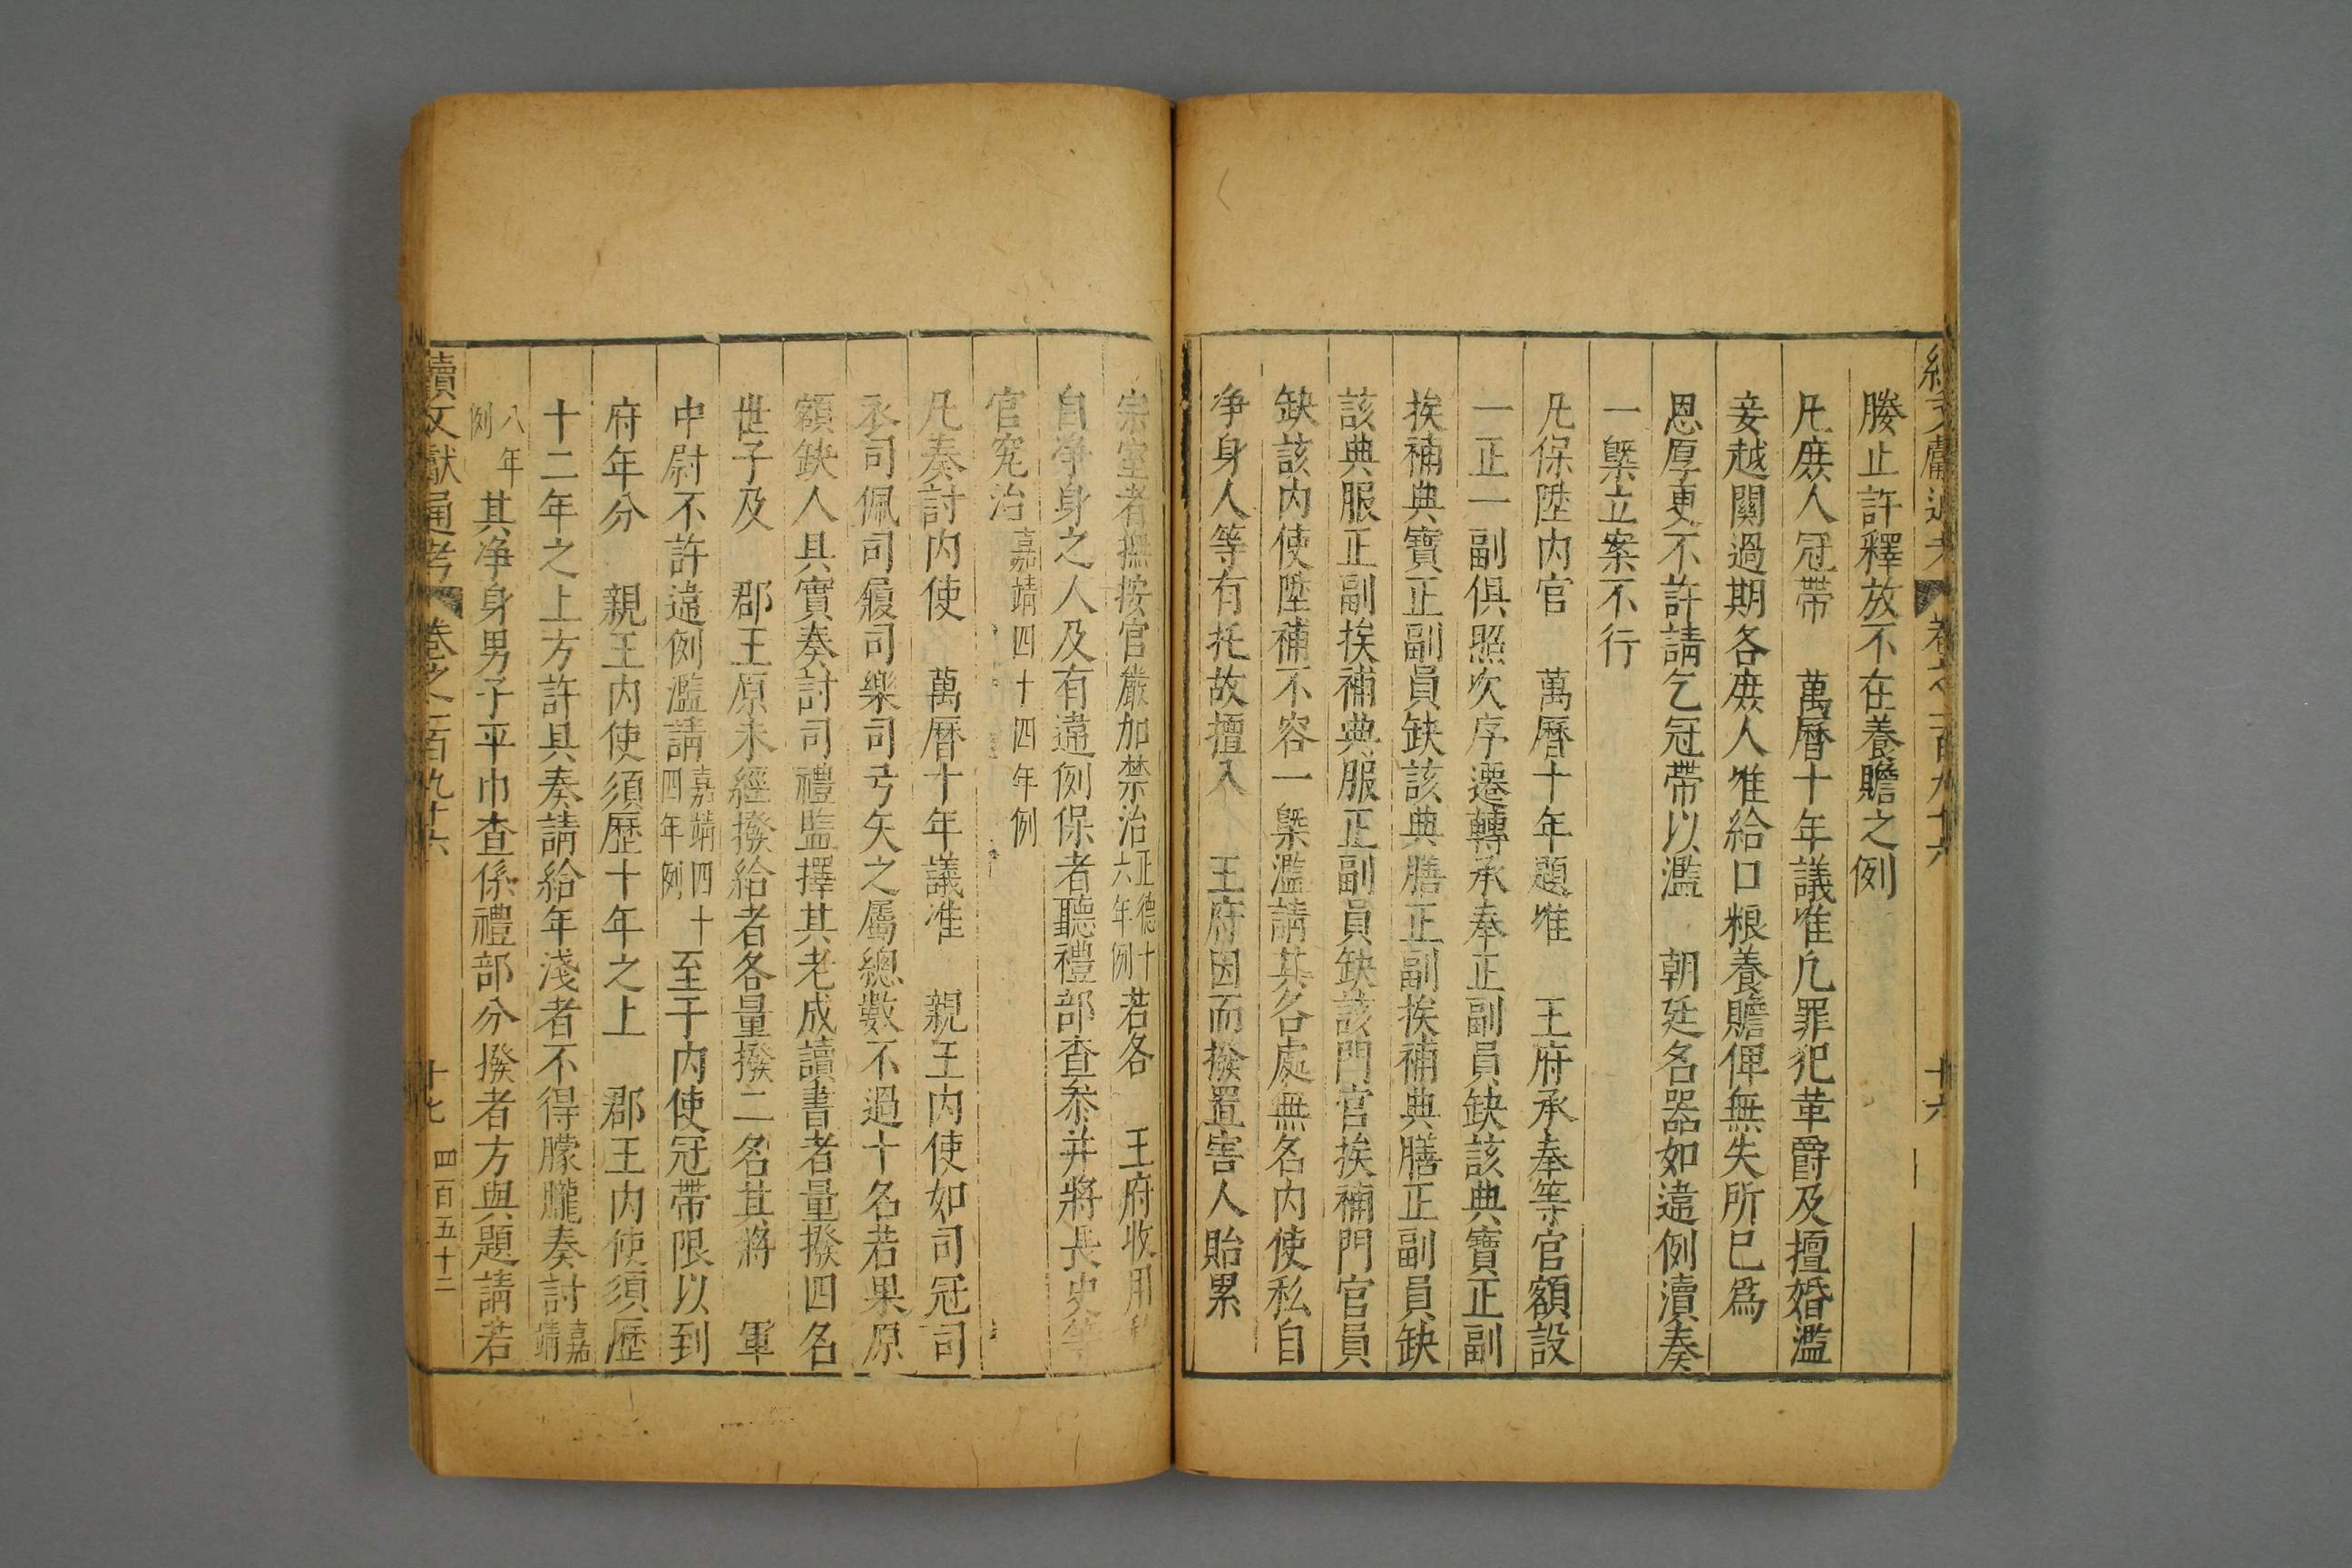 續文獻通考 卷之一百九十六 十六
媵止許釋放不在養贍之例
凡庶人冠帶 萬曆十年議准凡罪犯革爵及擅婚濫
妾越關過期各庶人惟給口粮養贍俾無失所已爲
恩厚更不許請乞冠帶以濫 朝廷名器如違例瀆奏
一槩立案不行
凡保陞内官 萬曆十年題准 王府承奉等官額設
一正一副俱照次序遷轉承奉正副員缺該典寶正副
挨補典寶正副員缺該典膳正副挨補典膳正副員缺
該典服正副挨補典服正副員缺該門官挨補門官員
缺該内使陞補不容一槩濫請其各處無名内使私自
净身人等有托故擅入 王府因而撥置害人貽累
宗室者撫按官嚴加禁治正德十六年例若各 王府收用私
自净身之人及有違例保者聽禮部查叅并將長史等
官究治嘉靖四十四年例
凡奏討内使 萬曆十年議准 親王内使如司冠司
衣司佩司履司樂司弓矢之屬總數不過十名若果原
額缺人具實奏討司禮監擇其老成讀書者量撥四名
世子及 郡王原未經撥給者各量撥二名其將 軍
中尉不許違例濫請嘉靖四十四年例至于内使冠帶限以到
府年分 親王内使須歷十年之上 郡王内使須歷
十二年之上方許具奏請給年淺者不得朦朧奏討嘉靖
八年例其净身男子平巾查係禮部分撥者方與題請若
續文獻通考 卷之一百九十六 十七 四百五十二